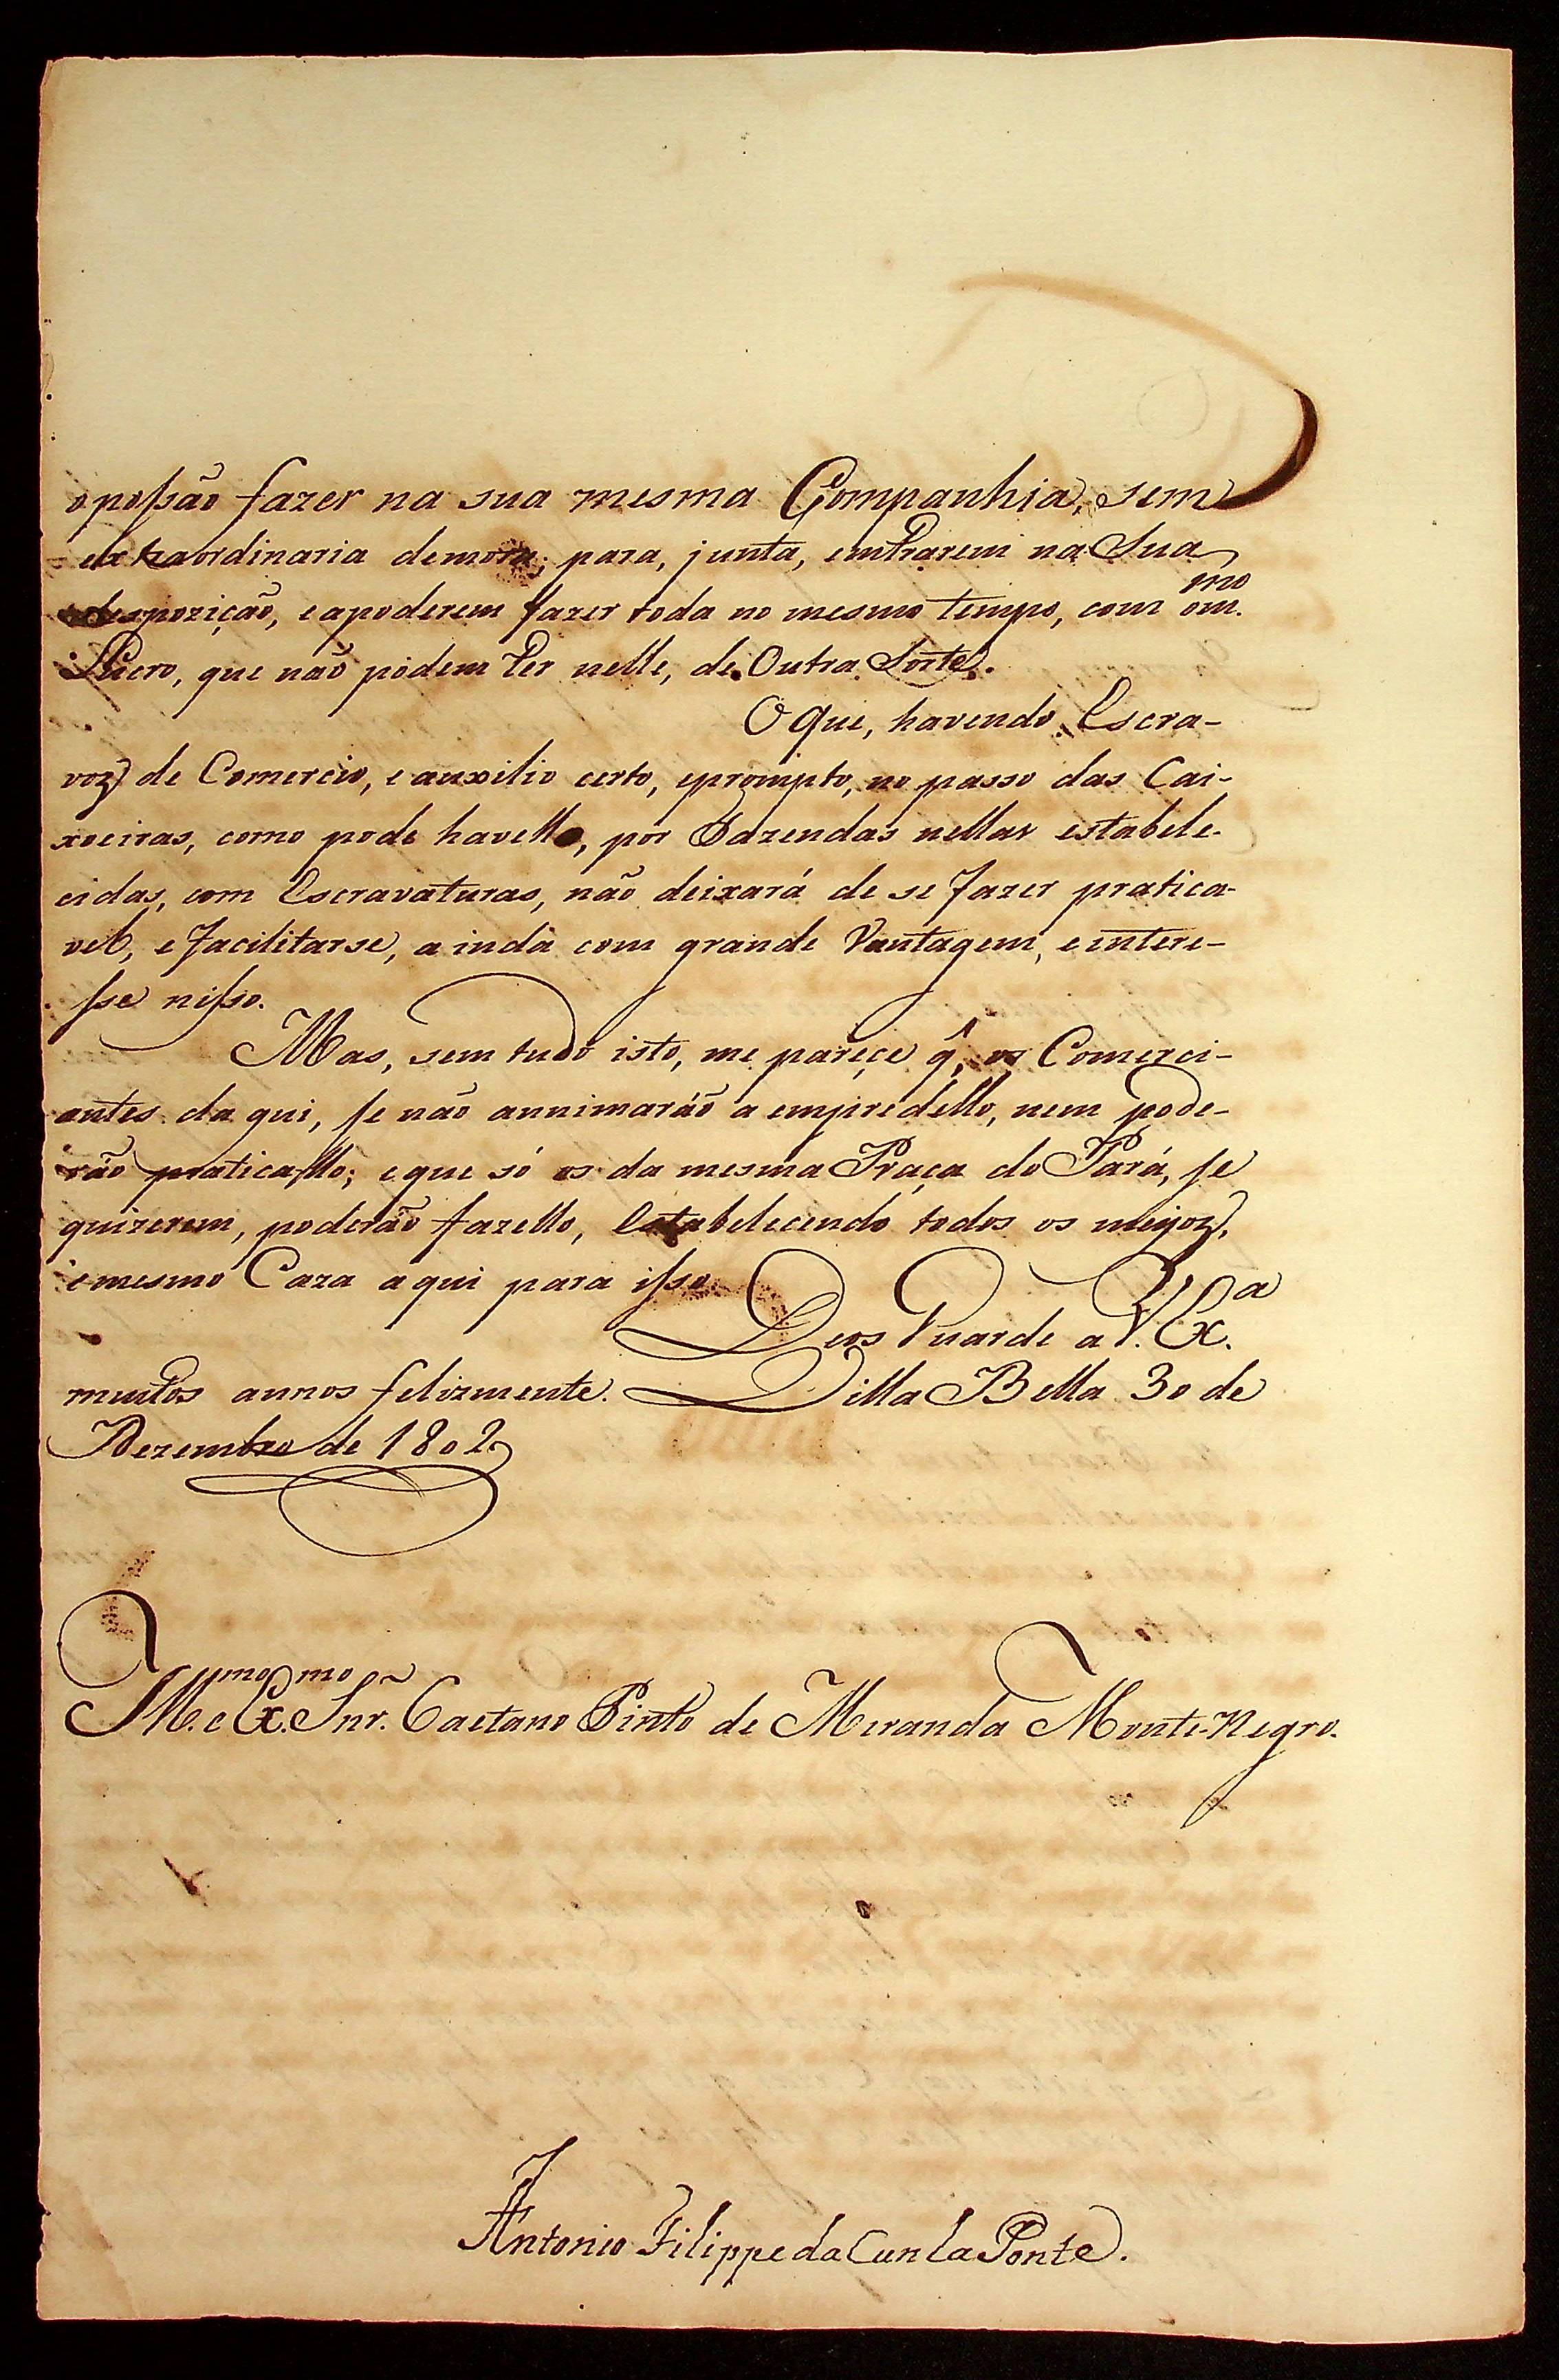 opossão fazer na sua mesma Companhia, sem
extraordinaria demora, para, junta, emtrarem na Sua
despozição, eapoderem fazer toda no mesmo tempo, com om.mo
Lucro, que não podem ter nelle, de Outra Sorte.
Oque, havendo Escra-
voz de Comercio, e auxilio certo, eprompto, no passo das Cai-
xoeiras, como pode havello, por Fazendas nellas estabele-
cidas, com Escravaturas, não deixará de se fazer pratica-
vel, e facilitarse, a inda com grande Vantagem, eintere-
sse nisso.
Mas, sem tudo isto, me pareçe q̂, os Comerci-
antes da qui, se não annimarão a empredello, nem pode-
rão praticallo; eque só os da mesma Praça do Pará, se
quizerem, poderão fazello, Estabelecendo todos os meyoz,
emesmo Caza a qui para isso.
Deos Guarde a V. Ex.a
muitos annos felizmente. Villa Bella 30 de
Dezembro de 1802
Ill.mo e Ex.mo Snr.̃ Caetano Pinto de Miranda Monte-Negro.
Antonio Filippe da Cunha Ponte.